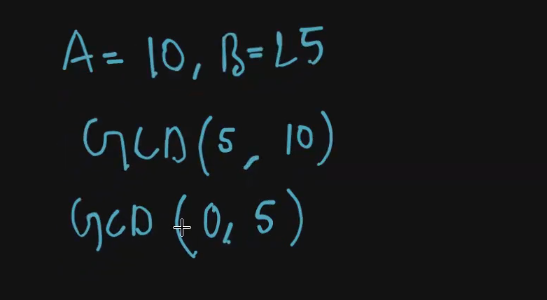 A = 10, B = 25
GCD (5, 10)
GCD (0, 5)